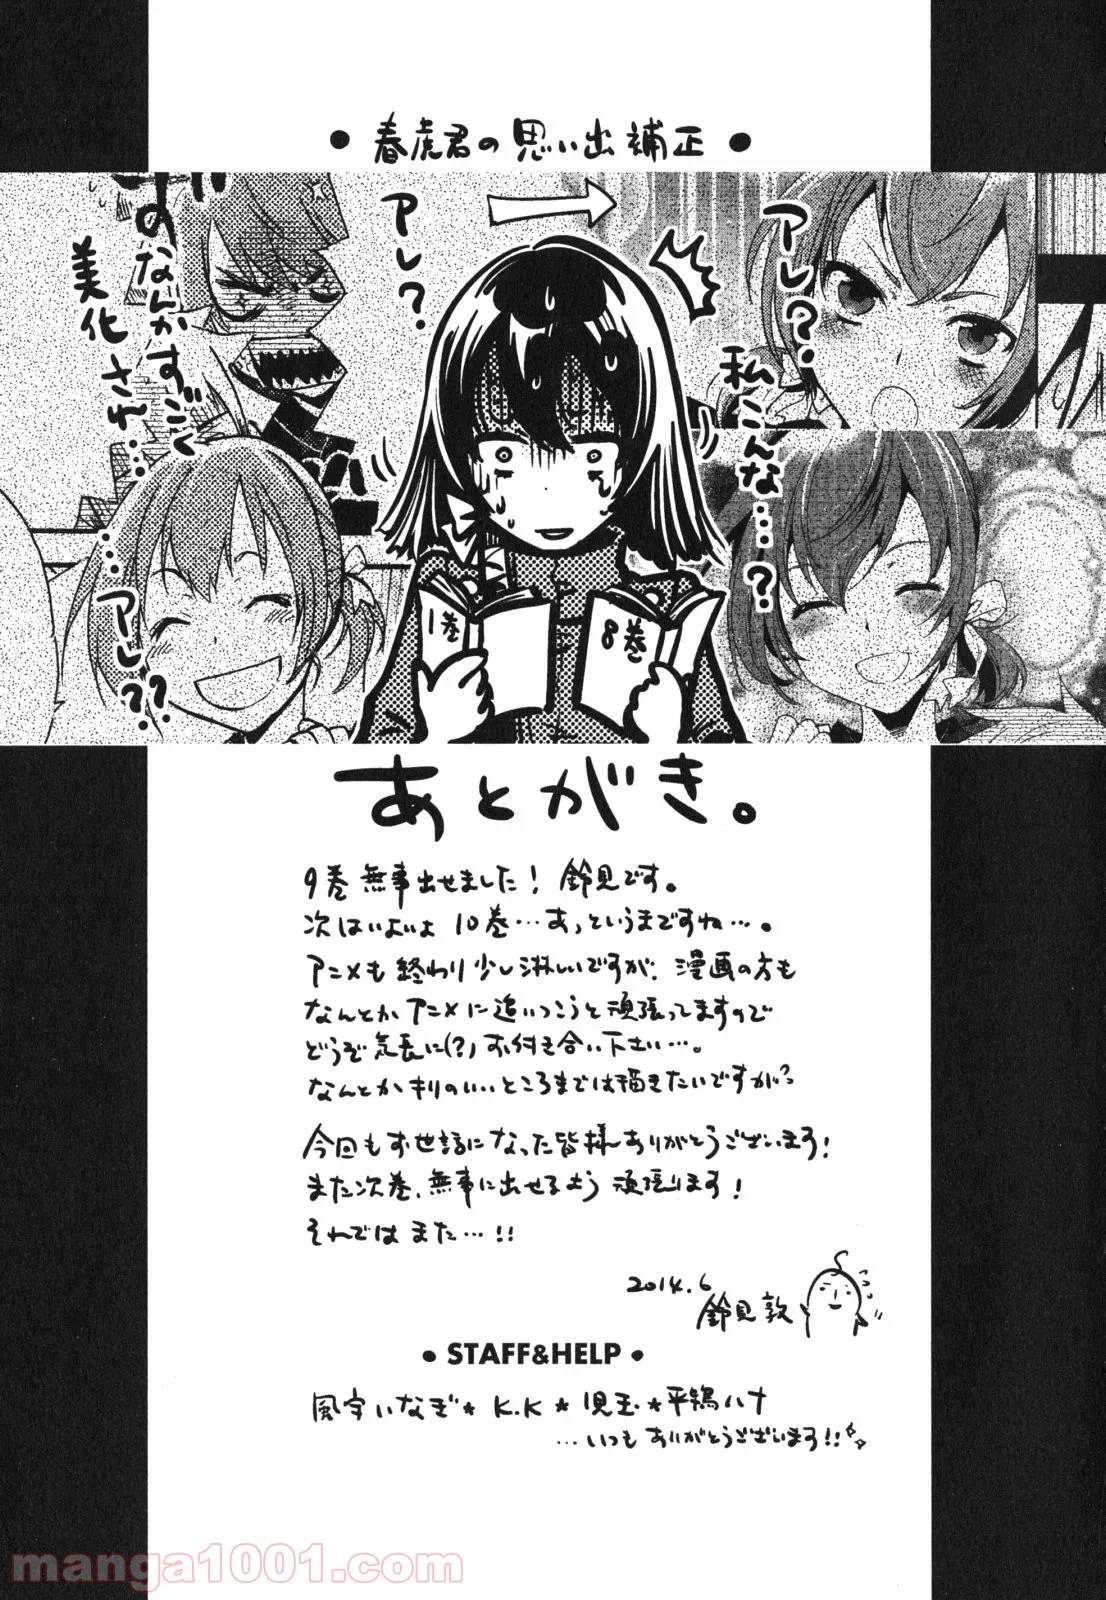 ●春虎君の思い出補正●
アレ?
私こんな…?
アレ?
のなんかすごく
美化され…
…アレ??
1巻
8巻
あとがき。
9巻無事出せました! 鈴見です。
次はいよいよ10巻…あっというまですね…。
アニメも終わり少し淋しいですが、漫画の方も
なんとかアニメに追いつこうと頑張ってますので
どうぞ気長に(?)お付き合い下さい…。
なんとかキリのいいところまでは描きたいですが?
今回もお世話になった皆様ありがとうございます!
また次巻、無事に出せるよう頑張ります!
それではまた…!!
2014.6
鈴見敦
●STAFF&HELP●
風宇いなぎ★K.K★児玉★平鴇ハナ
…いつもありがとうございます!!
manga1001.com